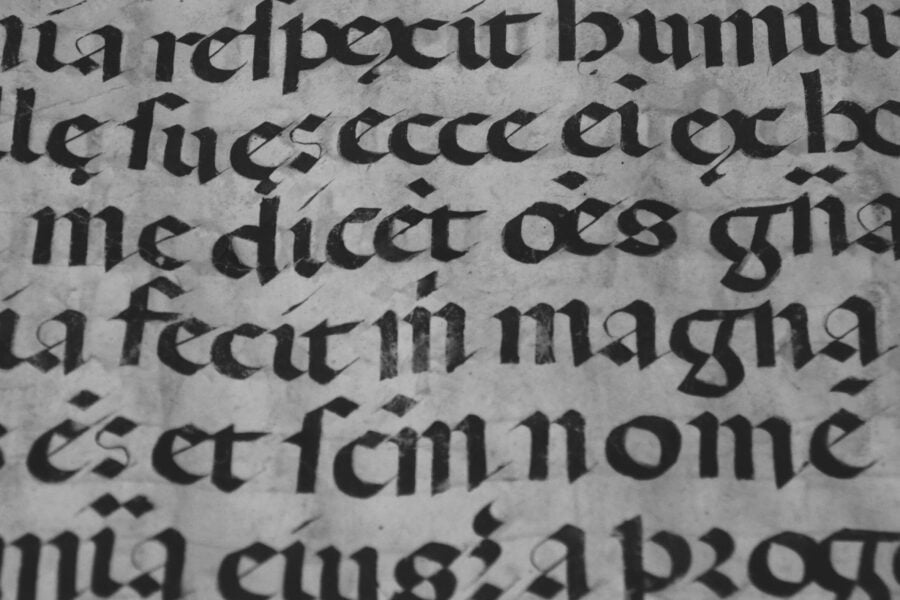 uia reſpexit humili
llę ſuę: ecce ei̇ ex ho
me dicēt oēs gña
ia fecit m̄ magna
ē: et ſcm̄ nomē
mīa eius: a proge